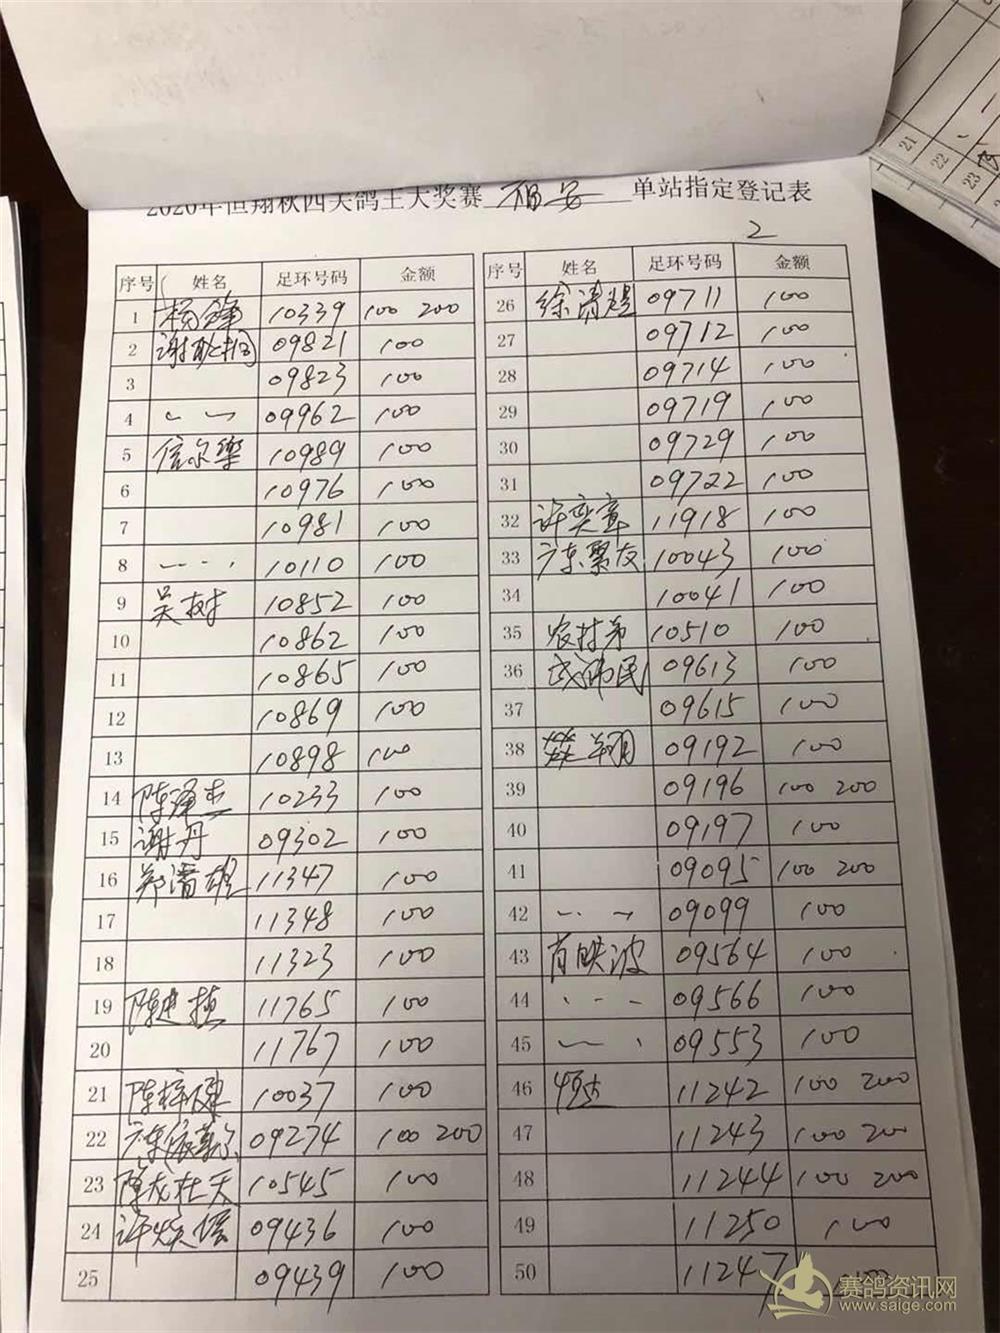 2020年恒翔秋四关鸽王大奖赛 福安 单站指定登记表
2
序号 姓名 足环号码 金额
1 杨锋 10339 100 200
2 谢 09821 100
3 09823 100
4 〃 〃 09962 100
5 信尔乐 10989 100
6 10976 100
7 10981 100
8 10110 100
9 吴树 10852 100
10 10862 100
11 10865 100
12 10869 100
13 10898 100
14 陈泽杰 10233 100
15 谢丹 09302 100
16 郑清雄 11347 100
17 11348 100
18 11323 100
19 陈建植 11765 100
20 11767 100
21 陈梓健 10037 100
22 广东依莱尔 09274 100 200
23 陈龙杜天 10545 100
24 许焕 09436 100
25 09439 100
序号 姓名 足环号码 金额
26 徐清煜 09711 100
27 09712 100
28 09714 100
29 09719 100
30 09729 100
31 09722 100
32 许奕章 11918 100
33 广东聚友 10043 100
34 10041 100
35 农村弟 10510 100
36 成沛民 09613 100
37 09615 100
38 翔 09192 100
39 09196 100 200
40 09197 100
41 09095 100 200
42 09099 100
43 肖映波 09564 100
44 09566 100
45 09553 100
46 恒达 11242 100 200
47 11243 100 200
48 11244 100 200
49 11250 100
50 11247 100
21
22
23
赛鸽资讯网
www.saige.com